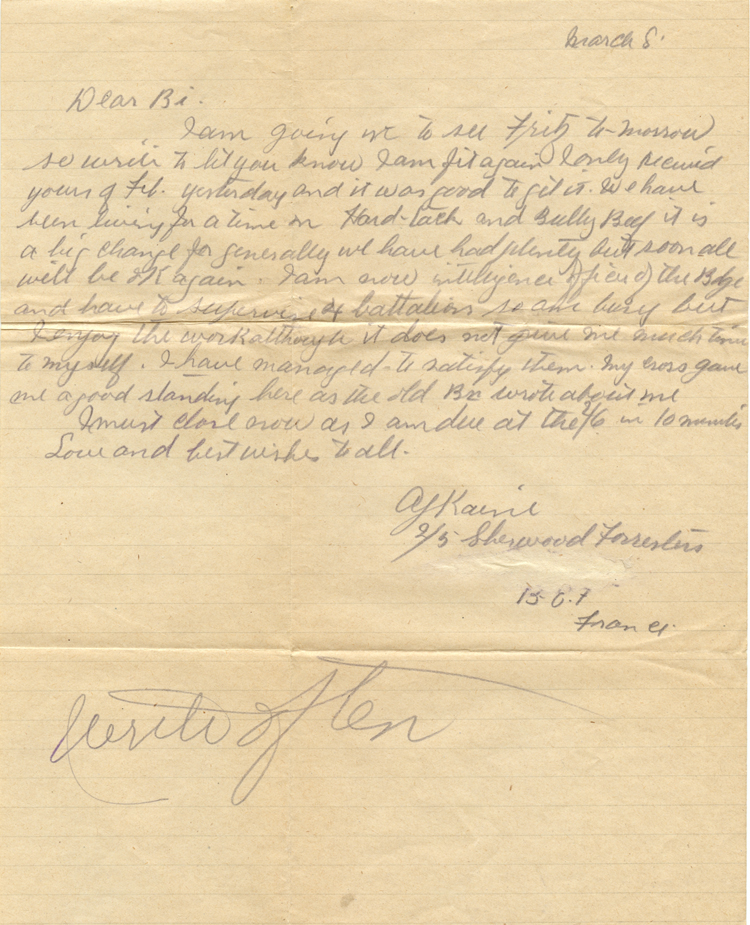 March 8.
Dear Bi.
I am going up to see Fritz to-morrow
so write to let you know I am fit again I only received
yours of Feb. yesterday and it was good to get it. We have
been living for a time on Hard-tack and Bully Beef it is
a big change for generally we have had plenty but soon all
will be OK again. I am now intelligence officer of the Bdge
and have to supervise 4 battalions so am busy but
I enjoy the work although it does not give me much time
to myself. I have managed to satisfy them. My cross gave
me a good standing here as the old Bn wrote about me
I must close now as I am due at the in 10 minutes
Love and best wishes to all.
AJ Kaine
2/5 Sherwood Forresters
France
Write often